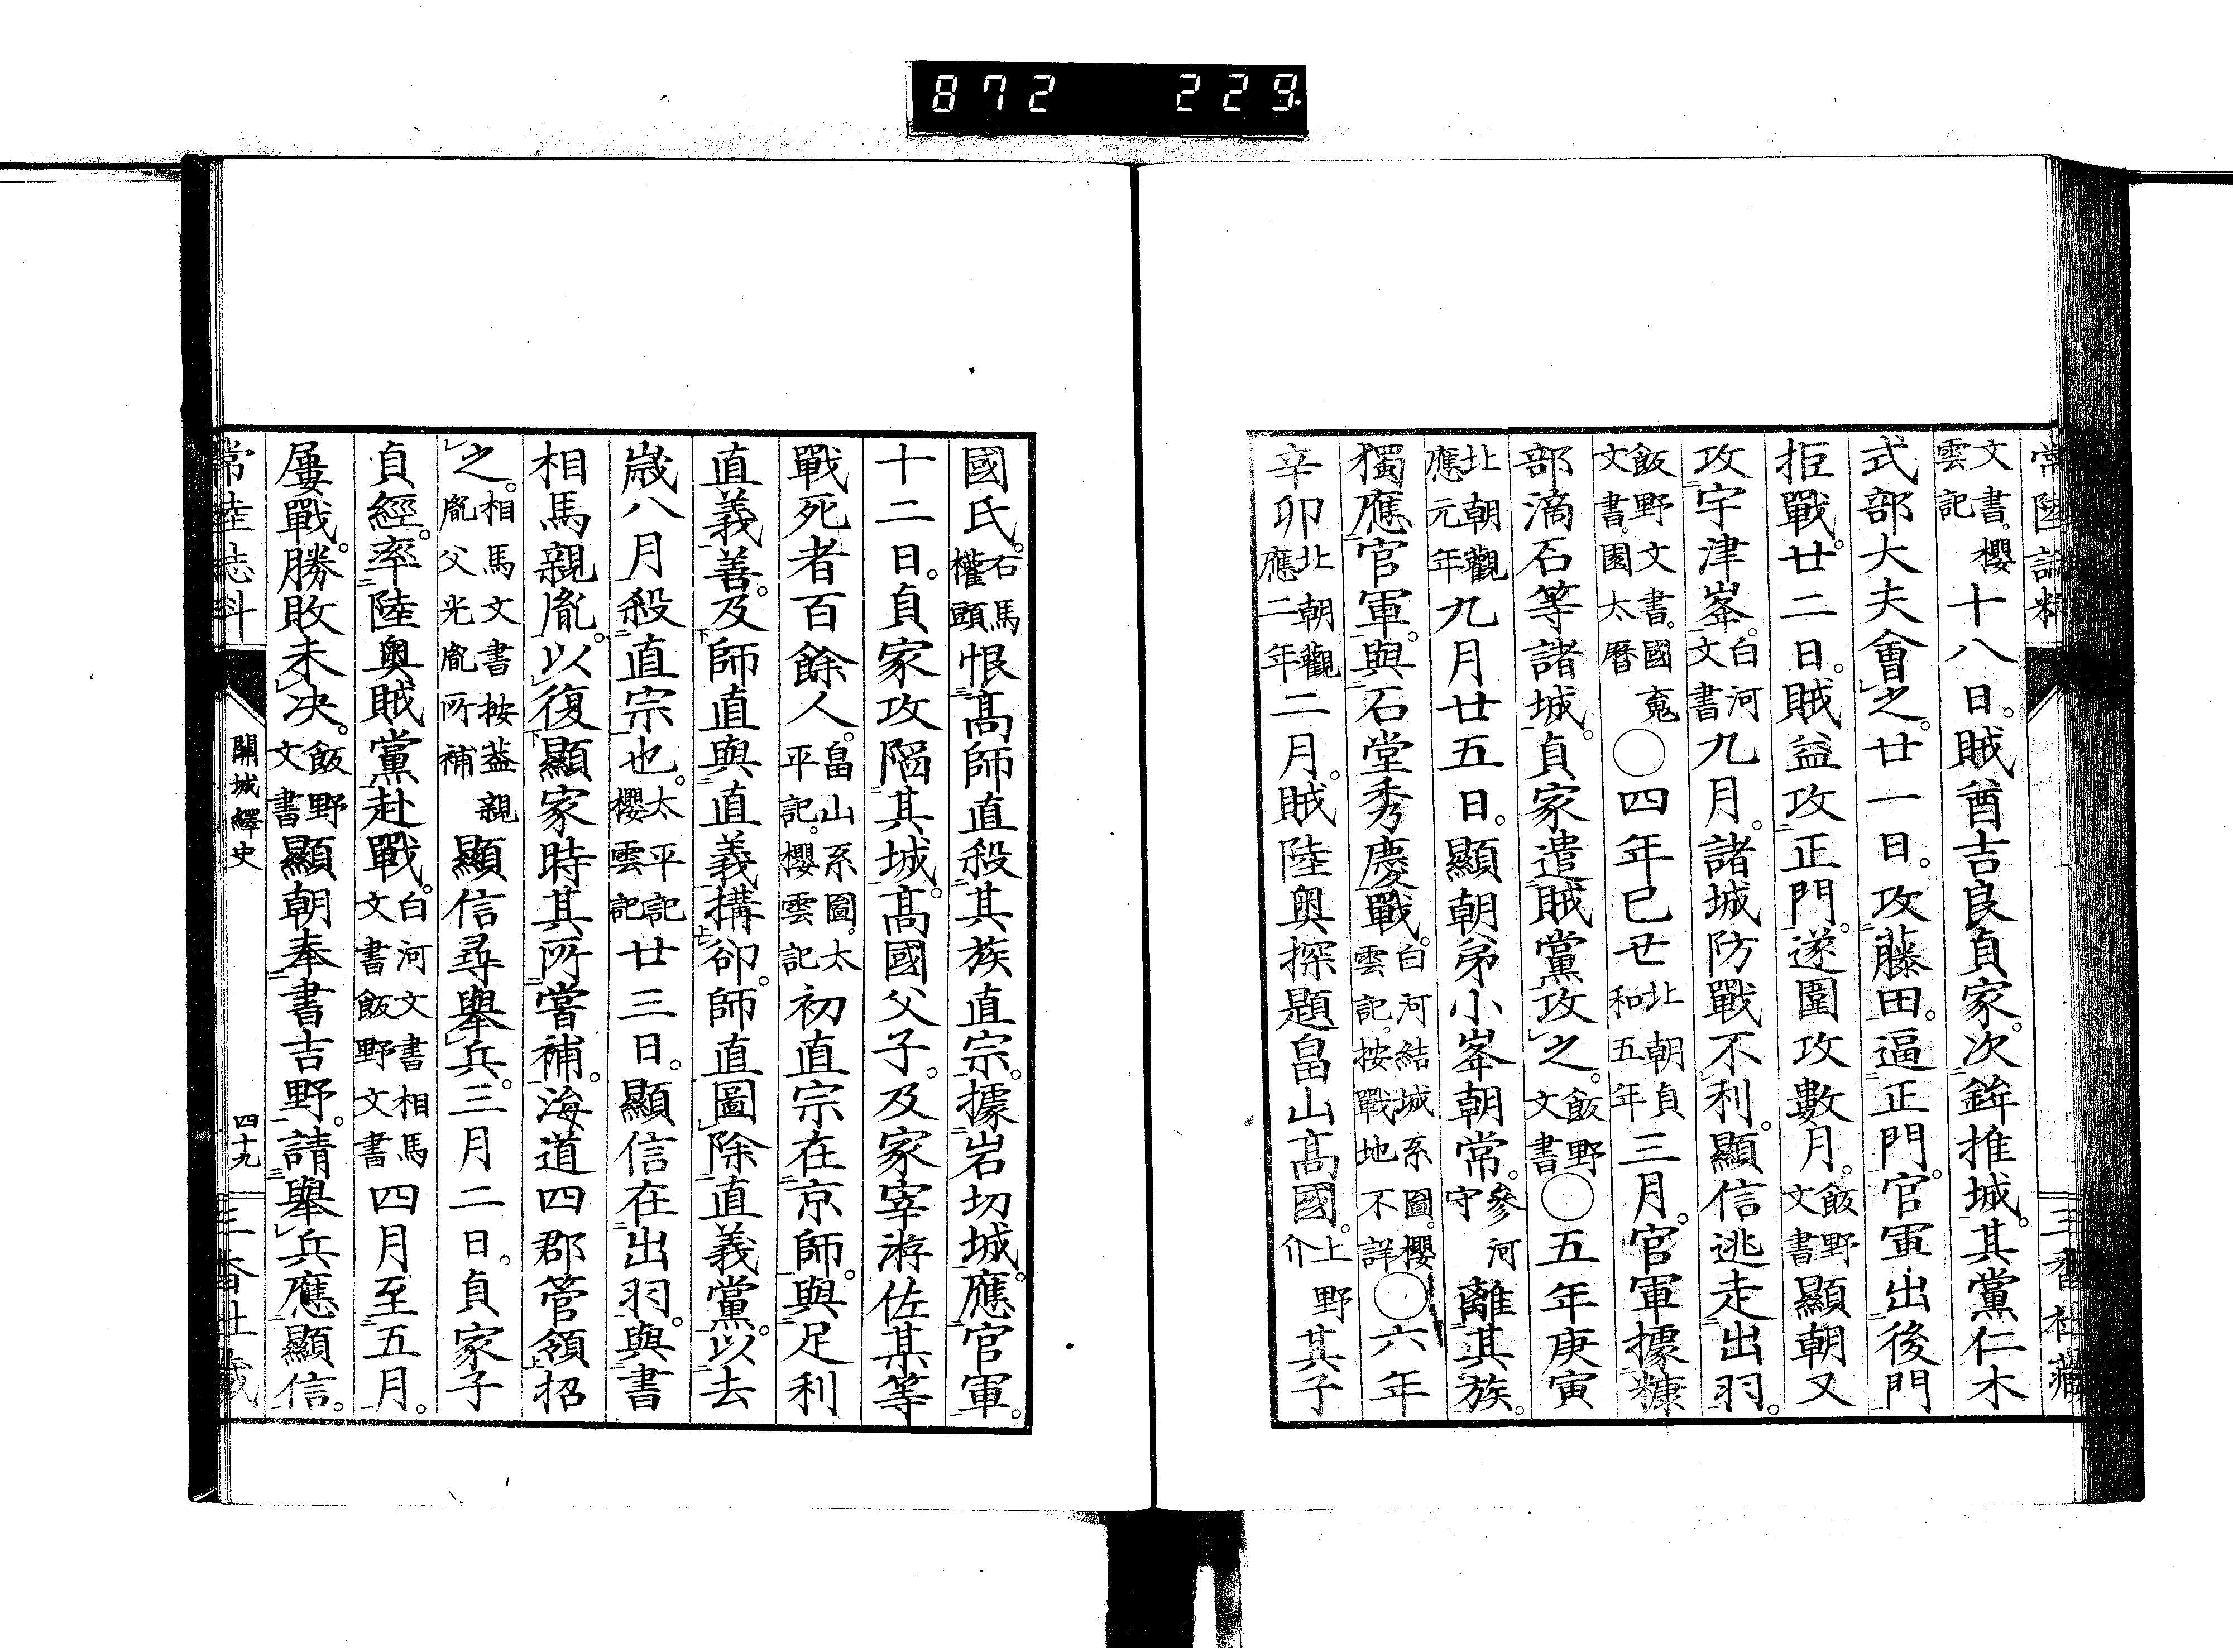 872 229.
常陸誌料
三香社藏
文書。櫻雲記十八日。賊酋吉良貞家。次鉾推城。其黨仁木
式部大夫會之。廿一日。攻藤田。逼正門。官軍出後門
拒戰。廿二日。賊益攻正門。遂圍攻數月。飯野文書顯朝又
攻宇津峯。白河文書九月。諸城防戰不利。顯信逃走出羽。
飯野文書。國䰟文書。園太曆〇四年己丑北朝貞和五年三月。官軍據糠
部滴石等諸城。貞家遣賊黨攻之。飯野文書〇五年庚寅
北朝觀應元年九月廿五日。顯朝弟小峯朝常。參河守離其族。
獨應官軍。與石堂秀慶戰。白河結城系圖。櫻雲記。按戰地不詳〇六年
辛卯北朝觀應二年二月。賊陸奧探題畠山高國。上野介其子
國氏。右馬權頭恨高師直殺其族直宗。據岩切城。應官軍。
十二日。貞家攻陷其城。高國父子。及家宰游佐某等
戰死者百餘人。畠山系圖。太平記。櫻雲記初直宗在京師。與足利
直義善。及師直與直義搆卻。師直圖除直義黨。以去
歲八月殺直宗也。太平記櫻雲記廿三日。顯信在出羽。與書
相馬親胤。以復顯家時其所嘗補。海道四郡管領招
之。相馬文書按蓋親胤父光胤所補顯信尋舉兵。三月二日。貞家子
貞經。率陸奧賊黨赴戰。白河文書相馬文書飯野文書四月至五月。
屢戰。勝敗未决。飯野文書顯朝奉書吉野。請舉兵應顯信。
常陸志料
關城繹史
四十九